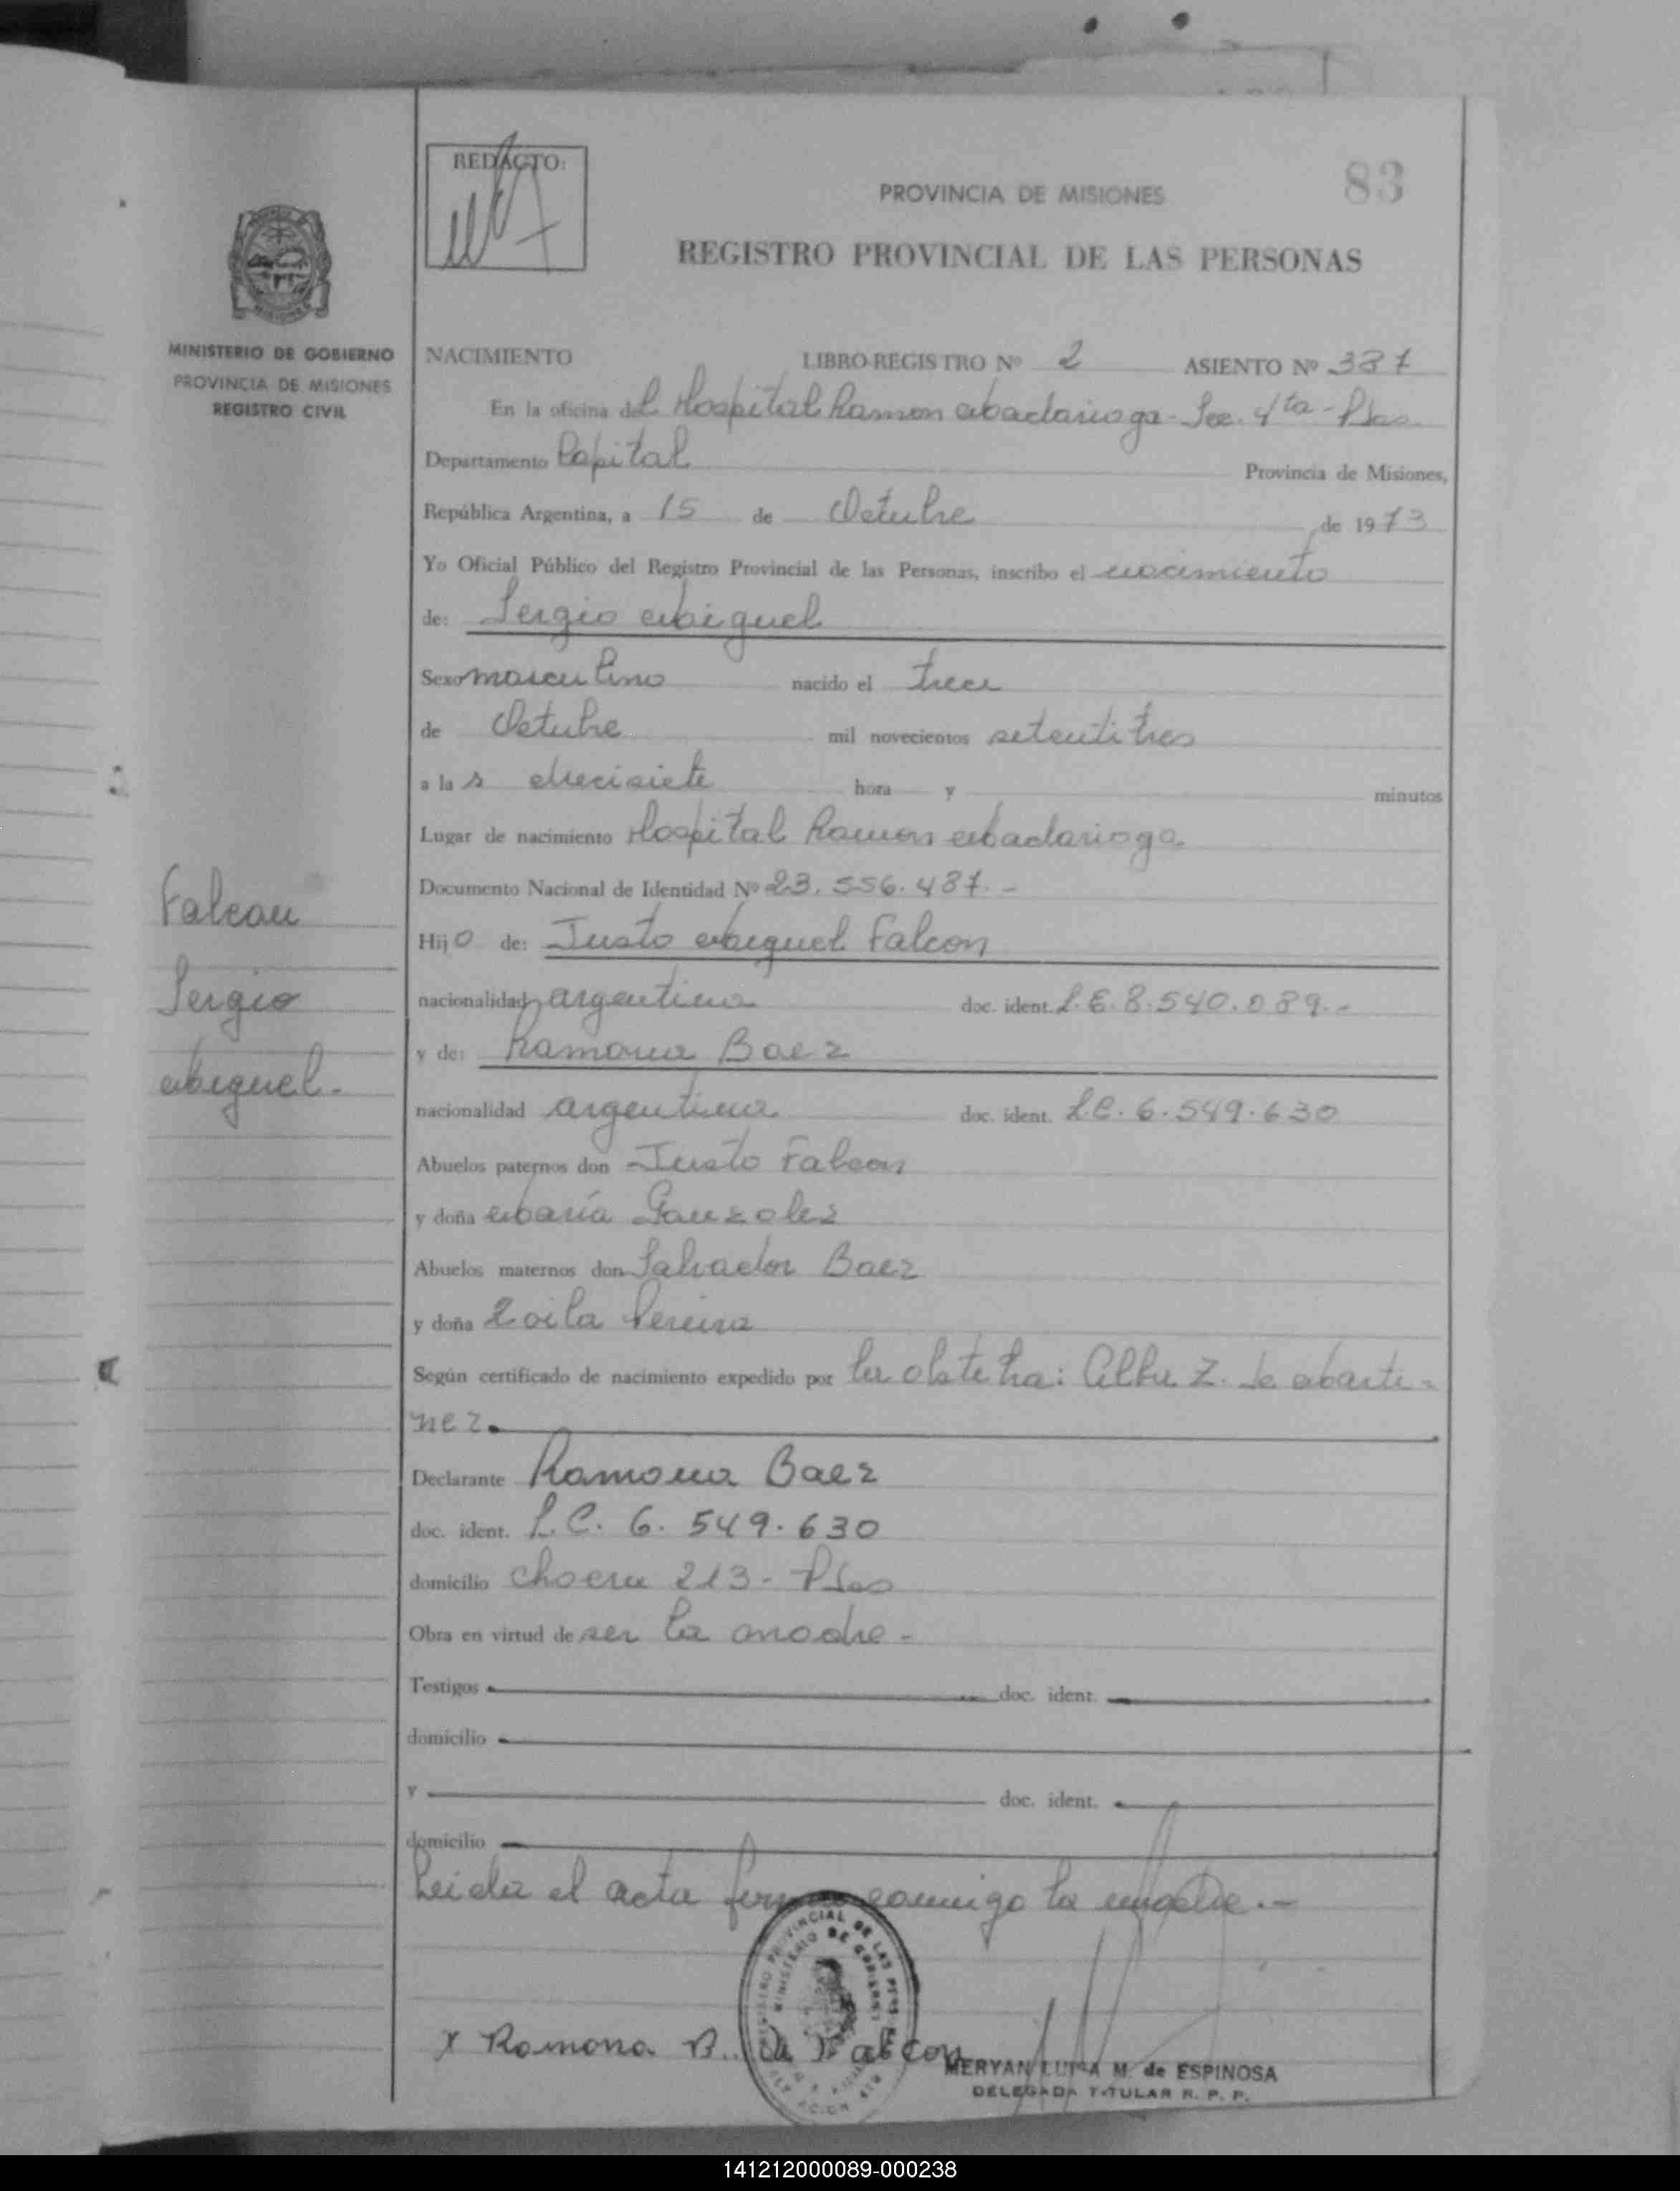 REDACTO:
83
PROVINCIA DE MISIONES
REGISTRO PROVINCIAL DE LAS PERSONAS
MINISTERIO DE GOBIERNO
PROVINCIA DE MISIONES
REGISTRO CIVIL
NACIMIENTO LIBRO-REGISTRO Nº 2 ASIENTO Nº 337
En la oficina del Hospital Ramon Madariaga - Sec. 4ta - Pdas.
Departamento Capital Provincia de Misiones,
República Argentina, a 15 de Octubre de 1973
Yo Oficial Público del Registro Provincial de las Personas, inscribo el nacimiento
de: Sergio Miguel
Sexo masculino nacido el trece
de Octubre mil novecientos setentitres
a la s diecisiete hora y minutos
Lugar de nacimiento Hospital Ramon Madariaga
Documento Nacional de Identidad Nº 23.556.437.-
Falcon
Sergio
Miguel.-
Hijo de: Justo Miguel Falcon
nacionalidad argentina doc. ident. L.E. 8.540.089.-
y de: Ramona Baez
nacionalidad argentina doc. ident. L.C. 6.549.630
Abuelos paternos don Justo Falcon
y doña María Gonzalez
Abuelos maternos don Salvador Baez
y doña Zoila Pereira
Según certificado de nacimiento expedido por la obstetra: Alba Z. de Marti-
nez.
Declarante Ramona Baez
doc. ident. L.C. 6.549.630
domicilio 213 - Pdas
Obra en virtud de ser la madre -
Testigos doc. ident.
domicilio
y doc. ident.
domicilio
Leida el acta firma conmigo la madre.-
REGISTRO PROVINCIAL DE LAS PERSONAS
MINISTERIO DE GOBIERNO
x Ramona B. de Falcon
MERYAN LUISA M. de ESPINOSA
DELEGADA TITULAR R. P. P.
141212000089-000238